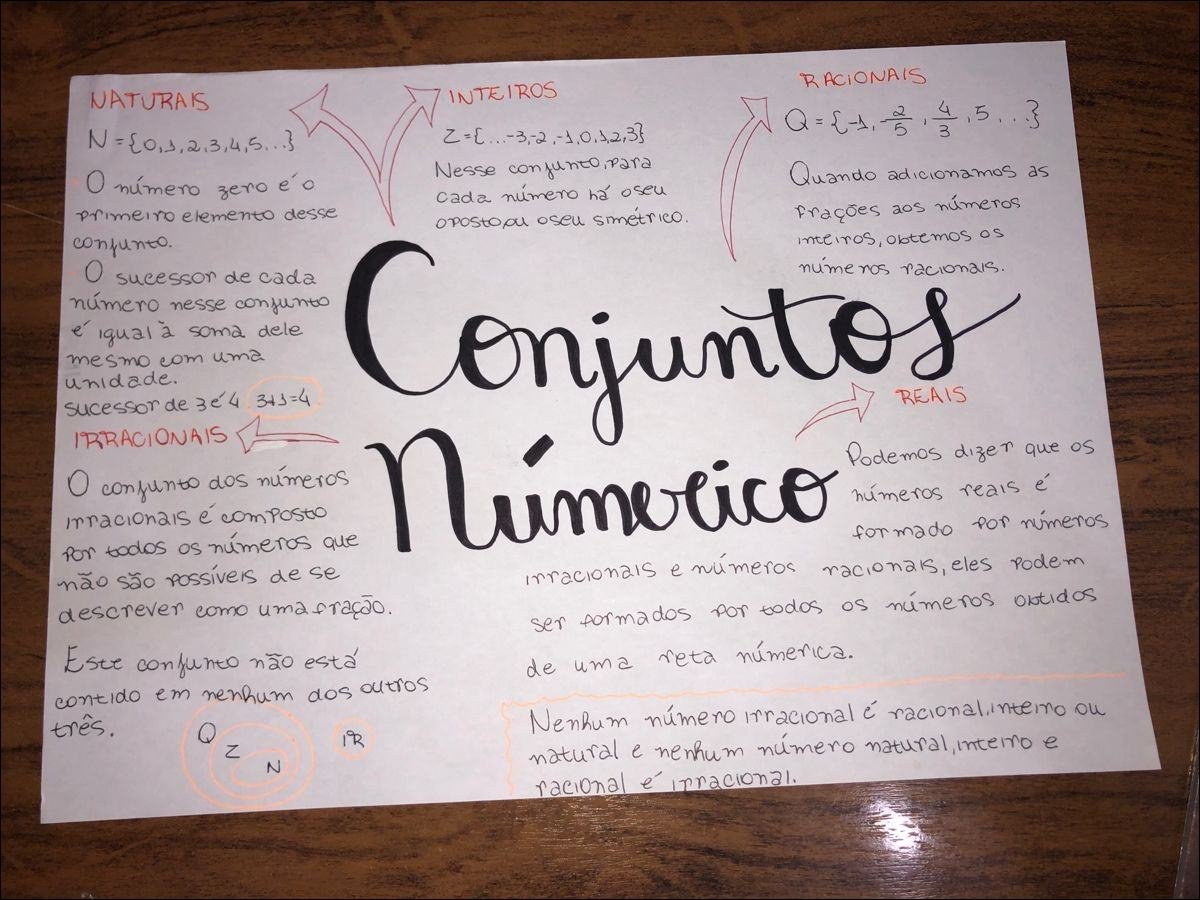 NATURAIS
N = {0,1,2,3,4,5...}
O número zero é o
primeiro elemento desse
conjunto.
O sucessor de cada
número nesse conjunto
é igual à soma dele
mesmo com uma
unidade.
sucessor de 3 é 4 3+1=4
INTEIROS
Z={...-3,-2,-1,0,1,2,3}
Nesse conjunto, para
cada número há o seu
oposto, ou o seu simétrico.
RACIONAIS
Q = {-1, -2/5, 4/3, 5 ...}
Quando adicionamos as
frações aos números
inteiros, obtemos os
números racionais.
Conjuntos
Númerico
IRRACIONAIS
O conjunto dos números
irracionais é composto
por todos os números que
não são possíveis de se
descrever como uma fração.
Este conjunto não está
contido em nenhum dos outros
três.
Q
Z
N
IR
REAIS
Podemos dizer que os
números reais é
formado por números
irracionais e números racionais, eles podem
ser formados por todos os números obtidos
de uma reta númerica.
Nenhum número irracional é racional, inteiro ou
natural e nenhum número natural, inteiro e
racional é irracional.